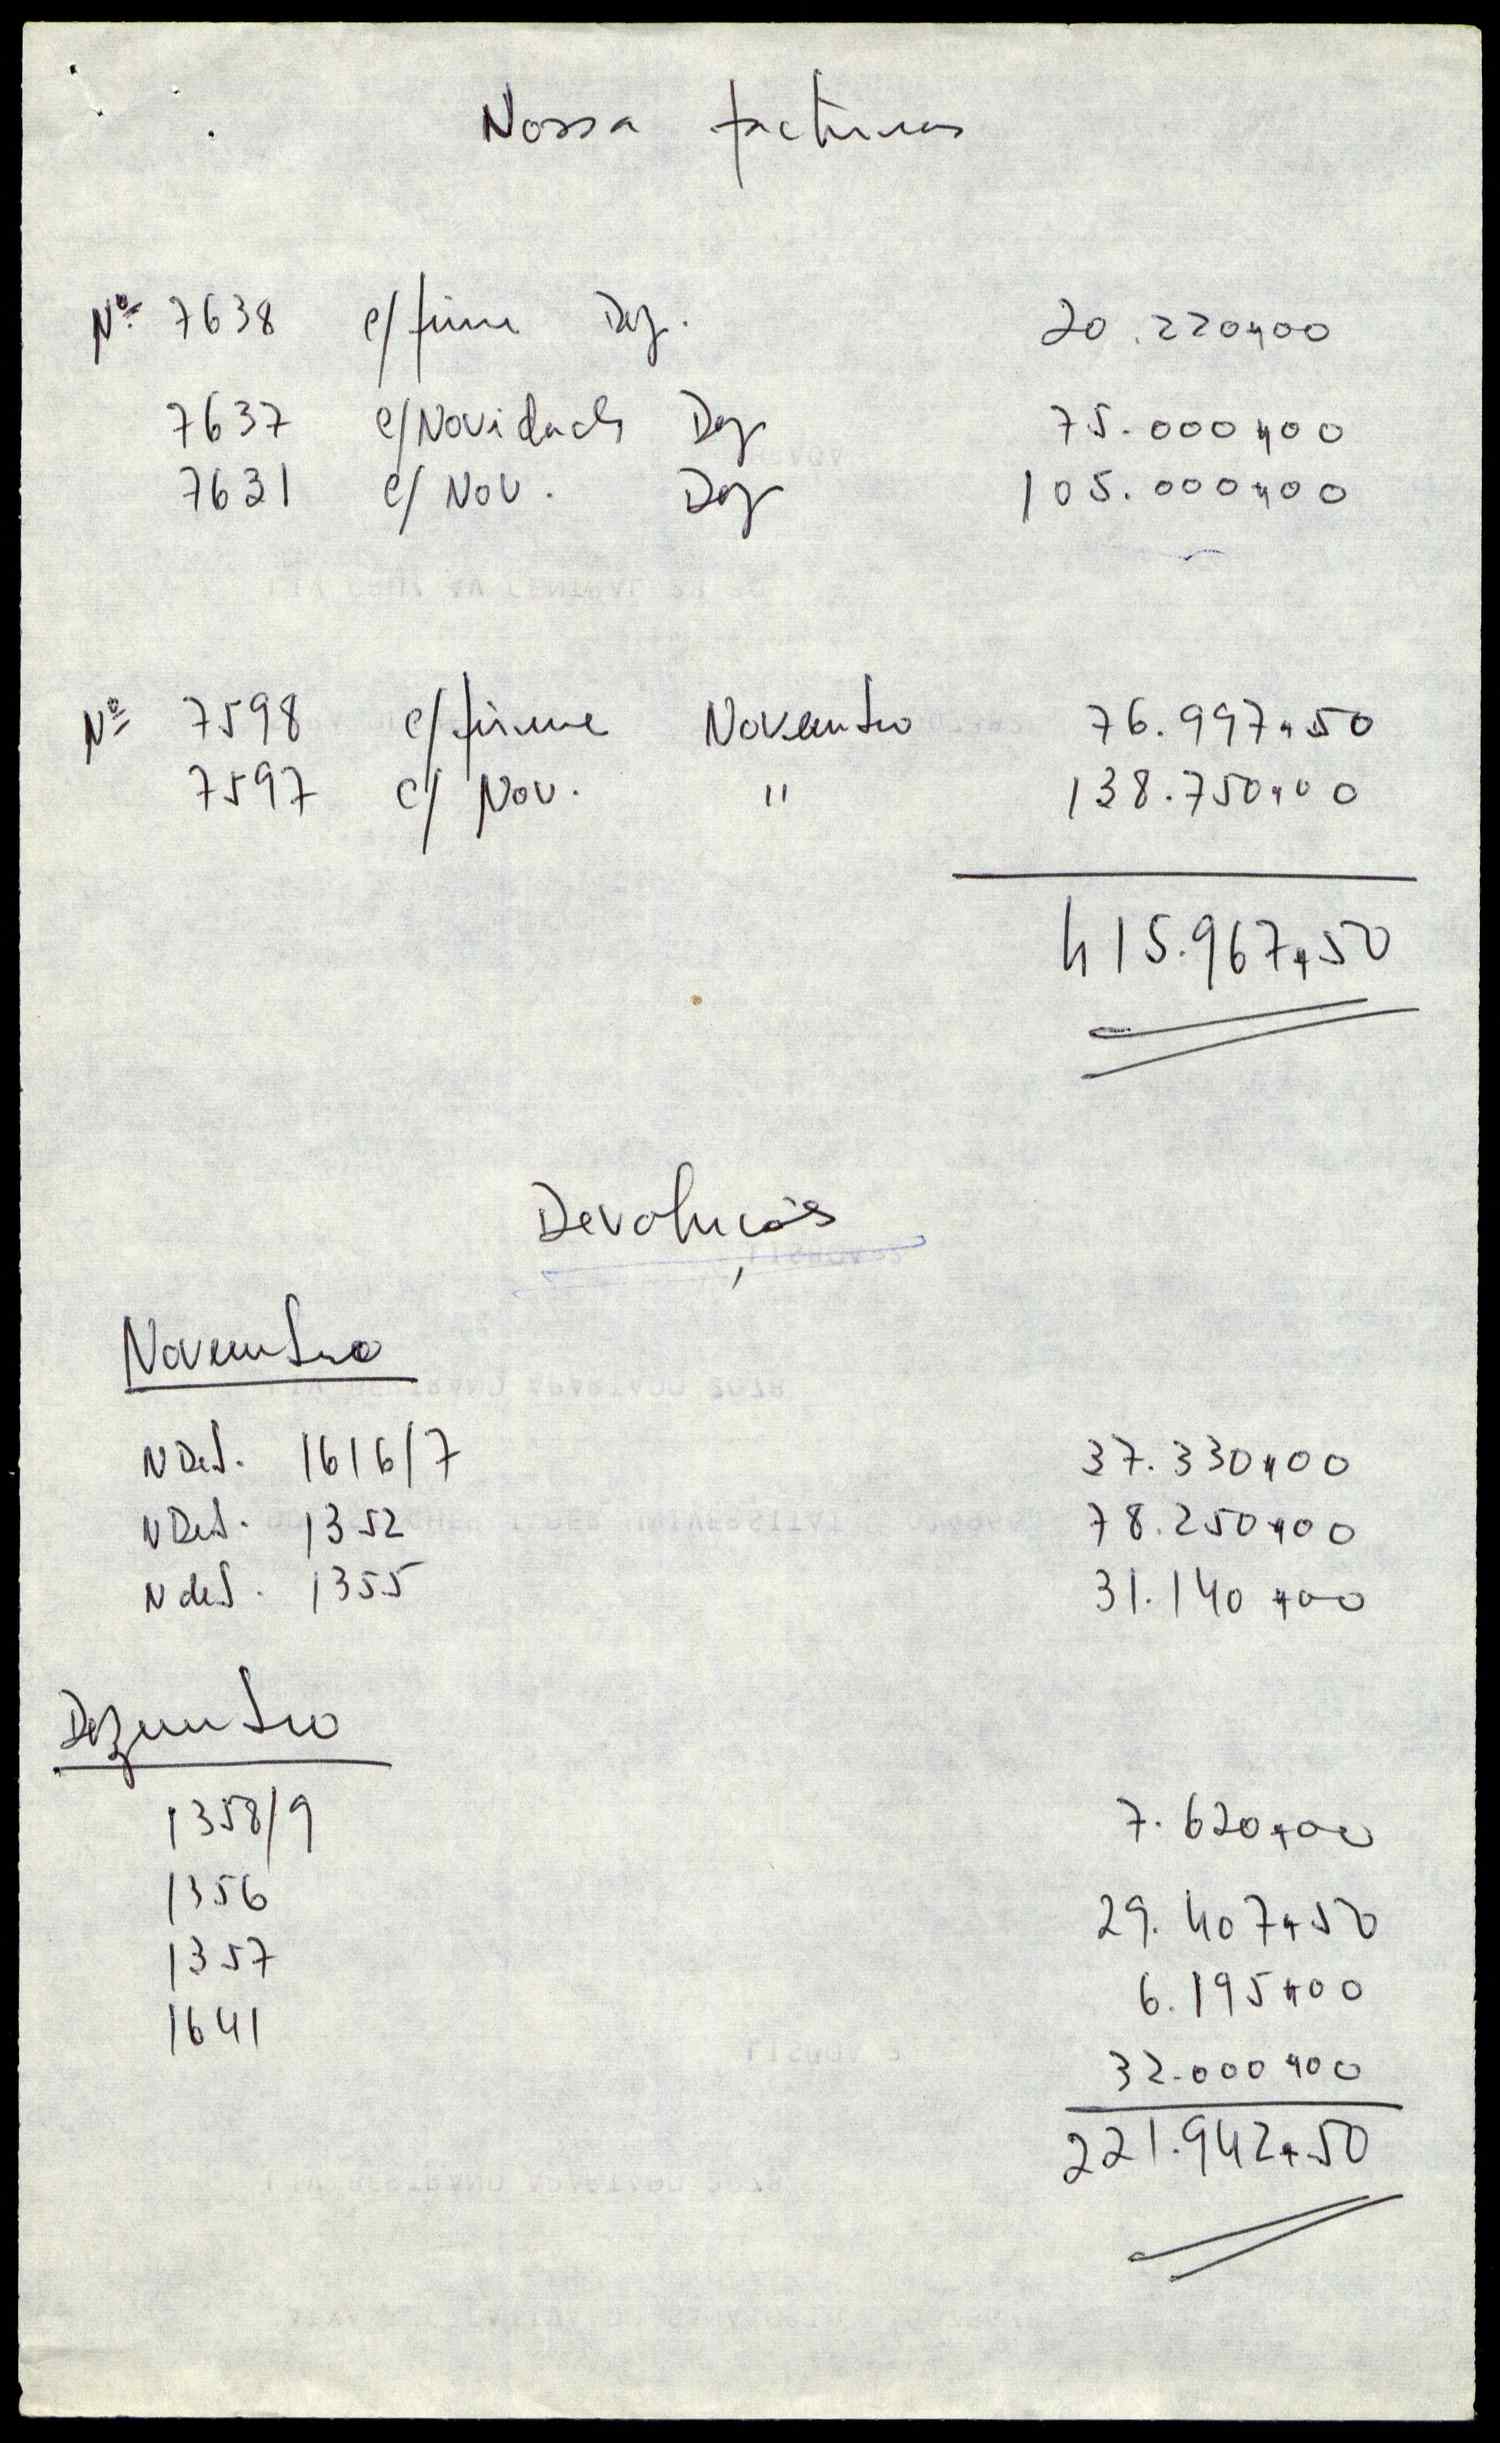 Nossa facturas
Nº 7638 c/firme Dez. 20.220$00
7637 c/Novidades Dez 75.000$00
7631 c/Nov. Dez 105.000$00
Nº 7598 c/firme Novembro 76.997$50
7597 c/ Nov. " 138.750$00
415.967$50
Devoluções
Novembro
N Dev. 1616/7 37.330$00
N Dev. 1352 78.250$00
N dev. 1355 31.140$00
Dezembro
1358/9 7.620$00
1356 29.407$50
1357 6.195$00
1641 32.000$00
221.942$50